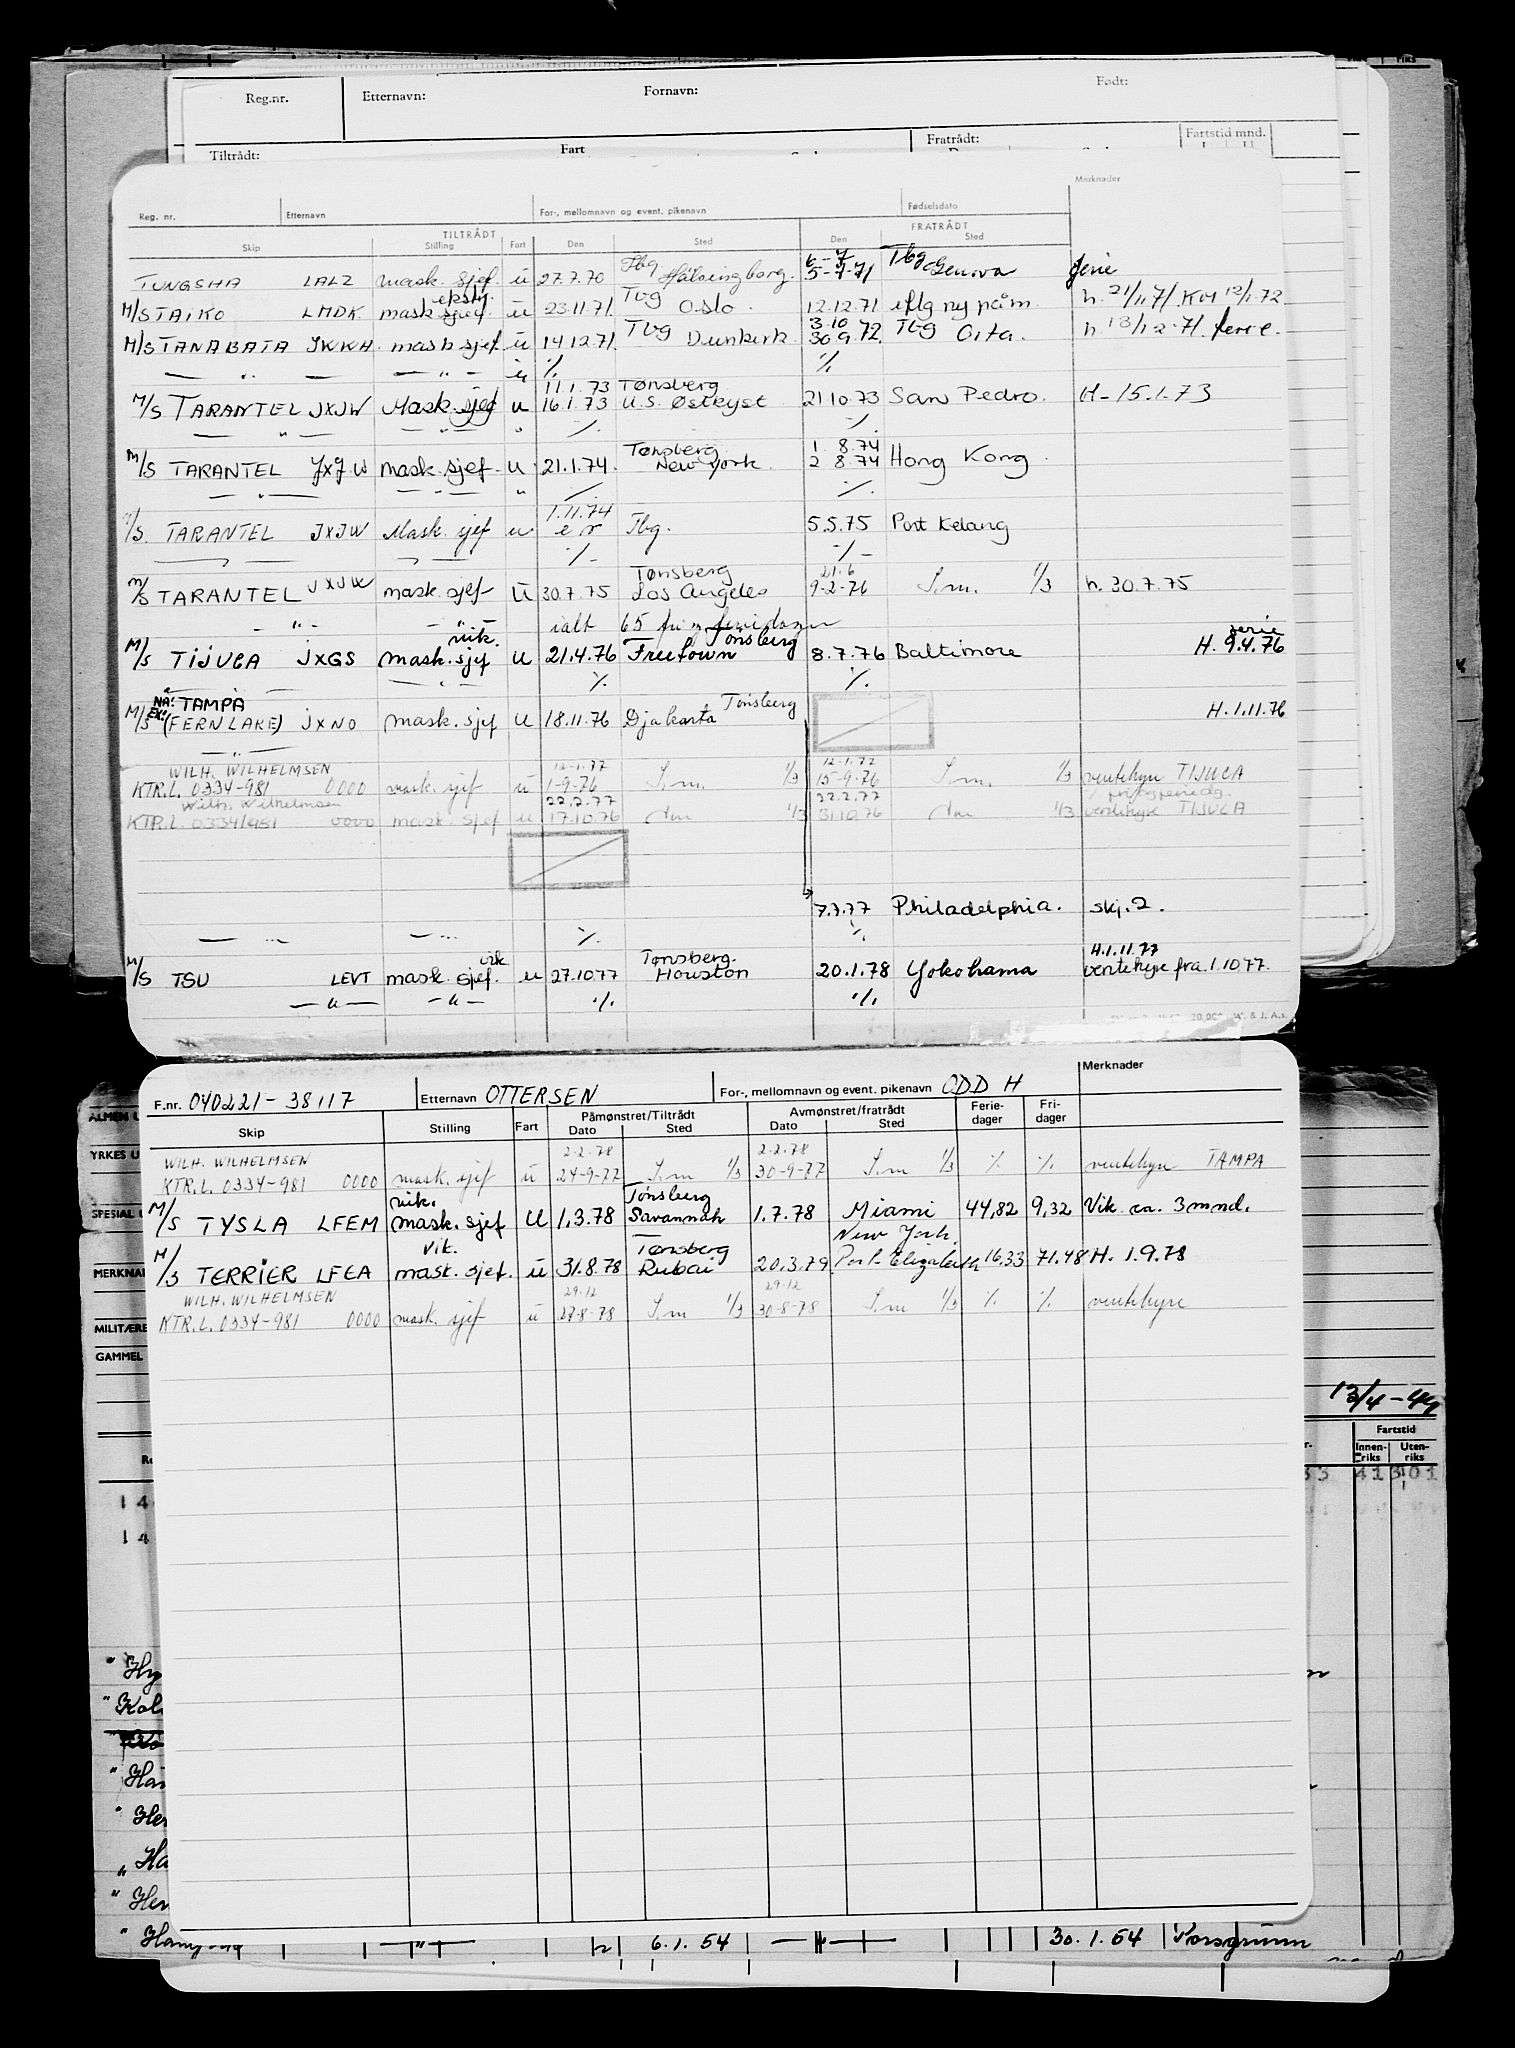 Reg.nr. Etternavn: Fornavn: Født:
Tiltrådt: Fart Fratrådt: Fartstid mnd.
Merknader
Reg. nr. Etternavn For-, mellomnavn og event. pikenavn Fødselsdato
TILTRÅDT FRATRÅDT
Skip Stilling Fart Den Sted Den Sted
TUNGSHA LALZ mask. sjef. u 27.7.70 Tbg. Hälsingborg. 6-7 5-7-71 Tbg Genova ferie
M/S TAIKO LMDK ekstr. mask sjef. u 23.11.71 Tbg Oslo. 12.12.71 iflg ny påm. h. 21/11.71. KM 12/1.72
M/S TANABATA JKKH. mask sjef u 14.12.71. Tbg Dunkirk. 3.10 30.9.72. Tbg Oita. h. 13/12.71. ferie.
— " — — " — u % %
M/S TARANTEL JXJW Mask. sjef u 11.1.73 16.1.73 Tønsberg U.S. Østkyst 21.10.73 San Pedro. H-15.1.73
— " — — " — " % %
M/S TARANTEL JXJW mask. sjef. u. 21.1.74. Tønsberg New York. 1.8.74 2.8.74 Hong Kong.
— " — — " — " % %
M/S. TARANTEL JXJW Mask. sjef u 1.11.74 er Tbg. 5.5.75 Port Kelang
% %
M/S TARANTEL JXJW mask. sjef u 30.7.75 Tønsberg Los Angeles 21.6 9-2-76 S.m. 1/3 h. 30.7.75
— " — — " — ialt 65 fri og feriedager
M/S TIJUCA JXGS vik. mask. sjef u 21.4.76 Tønsberg Freetown 8.7.76 Baltimore ferie H. 9.4.76
— " — — " — % %
M/S NÅ: TAMPA EX: (FERNLAKE) JXNO mask. sjef u 18.11.76 Djakarta Tønsberg H. 1.11.76
— " —
WILH. WILHELMSEN 12-1.77 12-1.77
KTR.L. 0334-981 0000 mask. sjef u 1-9-76 S.m. 1/3 15-9-76 S.m. 1/3 ventehyre TIJUCA
Wilh. Wilhelmsen 22.2.77 22.2.77
KTR.L. 0334/981 0000 mask. sjef u 17.10.76 1/3 31.10.76 1/3 ventehyre TIJUCA
7.7.77 Philadelphia. skj. 2.
— " — — " — % %
M/S TSU LEVT vik mask. sjef. u 27.10.77 Tønsberg. Houston 20.1.78 Yokohama H.1.11.77 ventehyre fra 1.10.77.
— " — — " — % %
W. & J. A.s.
F.nr. 040221-38117 Etternavn OTTERSEN For-, mellomnavn og event. pikenavn ODD H Merknader
Skip Stilling Fart Påmønstret/Tiltrådt Dato Sted Avmønstret/fratrådt Dato Sted Ferie-dager Fri-dager
WILH. WILHELMSEN 2-2-78 2-2-78
KTR.L. 0334-981 0000 mask. sjef u 24-9-77 S.m 1/3 30-9-77 S.m 1/3 % % ventehyre TAMPA
M/S TYSLA LFEM vik. mask. sjef u 1.3.78 Tønsberg Savannah 1.7.78 Miami 44,82 9,32 Vik. ca. 3 mnd.
M/S TERRIER LFEA vik. mask. sjef. u 31.8.78 Tønsberg Dubai 20.3.79 New York. Port Elizabeth 16,33 71.48 H. 1.9.78
WILH. WILHELMSEN 29.12 29.12
KTR.L. 0334-981 0000 mask. sjef u 27-8-78 S.m 1/3 30-8-78 S.m 1/3 % % ventehyre
ALMEN U
YRKES U
SPESIAL U
MERKNA
MILITÆRE
GAMMEL
13/4-49
Fartstid
Innen-riks Uten-riks
41 301
14
14
" Kol
" Her
" Her
— " — 6.1.54 — " — 30.1.54 Porsgrunn